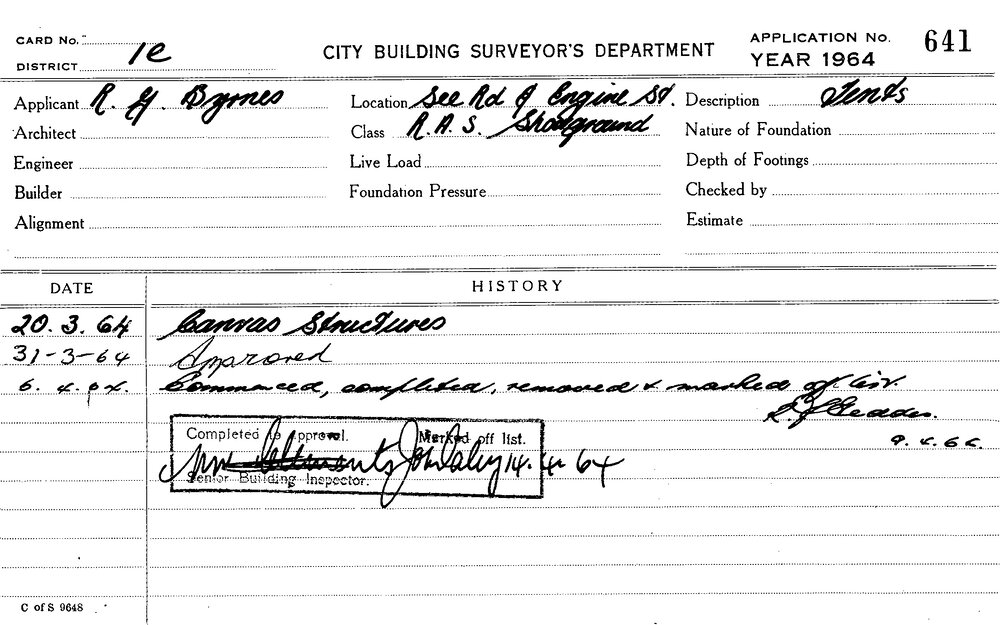 CARD No.
DISTRICT 1e
CITY BUILDING SURVEYOR'S DEPARTMENT
APPLICATION No. 641
YEAR 1964
Applicant R. G. Byrnes
Location See Rd & Engine St.
Description Tents
Architect
Class R.A.S. Showground
Nature of Foundation
Engineer
Live Load
Depth of Footings
Builder
Foundation Pressure
Checked by
Alignment
Estimate
DATE
HISTORY
20.3.64 Canvas Structures
31-3-64 Approved
6.4.64. Commenced, completed, removed & marked off list.
9.4.64.
Completed to Approval. Marked off list.
14.4.64
Senior Building Inspector.
C of S 9648